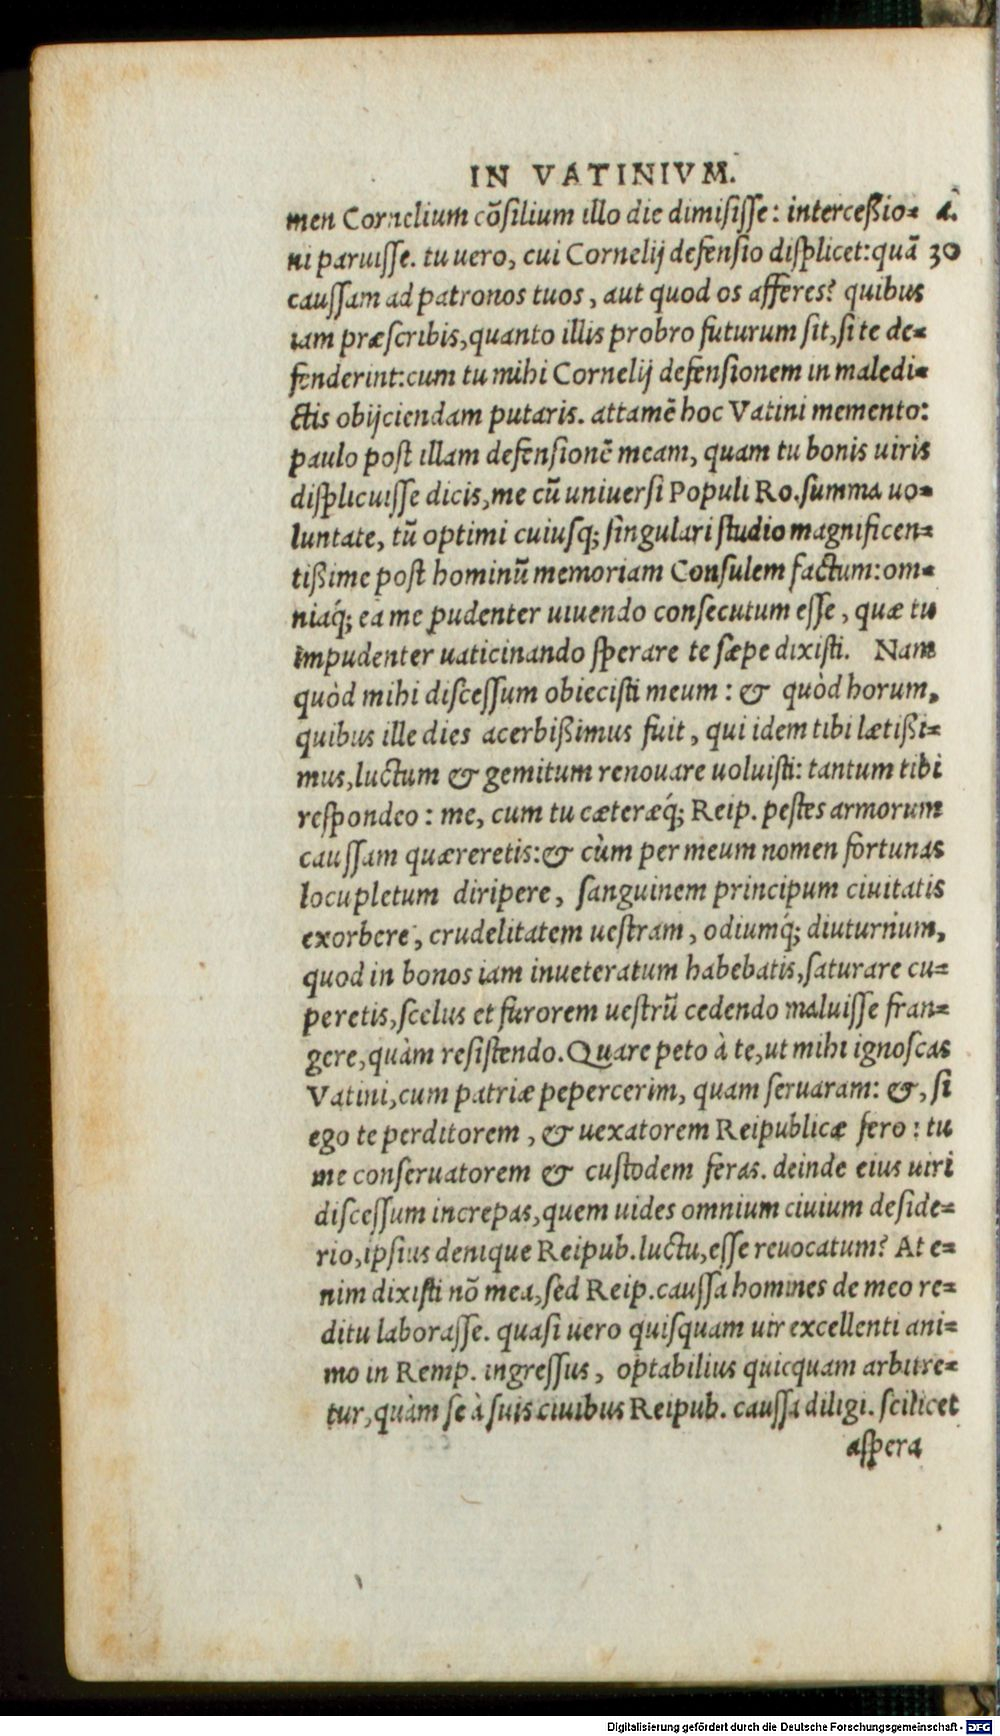 IN VATINIVM.
men Cornelium cõſilium illo die dimiſiſſe: interceßio= a.
ni paruiſſe. tu uero, cui Cornelij defenſio diſplicet: quã 30
cauſſam ad patronos tuos, aut quod os afferes? quibus
iam præſcribis, quanto illis probro futurum ſit, ſi te de=
fenderint: cum tu mihi Cornelij defenſionem in maledi=
ctis obijciendam putaris. attamẽ hoc Vatini memento:
paulo poſt illam defenſionẽ meam, quam tu bonis uiris
diſplicuiſſe dicis, me cũ uniuerſi Populi Ro. ſumma uo=
luntate, tũ optimi cuiuſq; ſingulari ſtudio magnificen=
tißime poſt hominũ memoriam Conſulem factum: om=
niaq́; ea me pudenter uiuendo conſecutum eſſe, quæ tu
impudenter uaticinando ſperare te ſæpe dixiſti. Nam
quòd mihi diſceſſum obieciſti meum: & quòd horum,
quibus ille dies acerbißimus fuit, qui idem tibi lætißi=
mus, luctum & gemitum renouare uoluiſti: tantum tibi
reſpondeo: me, cum tu cæteræq́; Reip. peſtes armorum
cauſſam quæreretis: & cùm per meum nomen fortunas
locupletum diripere, ſanguinem principum ciuitatis
exorbere, crudelitatem ueſtram, odiumq́; diuturnum,
quod in bonos iam inueteratum habebatis, ſaturare cu=
peretis, ſcelus et furorem ueſtrũ cedendo maluiſſe fran=
gere, quàm reſiſtendo. Quare peto à te, ut mihi ignoſcas
Vatini, cum patriæ pepercerim, quam ſeruaram: &, ſi
ego te perditorem, & uexatorem Reipublicæ fero: tu
me conſeruatorem & cuſtodem feras. deinde eius uiri
diſceſſum increpas, quem uides omnium ciuium deſide=
rio, ipſius denique Reipub. luctu, eſſe reuocatum? At e=
nim dixiſti nõ mea, ſed Reip. cauſſa homines de meo re=
ditu laboraſſe. quaſi uero quiſquam uir excellenti ani=
mo in Remp. ingreſſus, optabilius quicquam arbitre=
tur, quàm ſe à ſuis ciuibus Reipub. cauſſa diligi. ſcilicet
aſpera
Digitalisierung gefördert durch die Deutsche Forschungsgemeinschaft - DFG